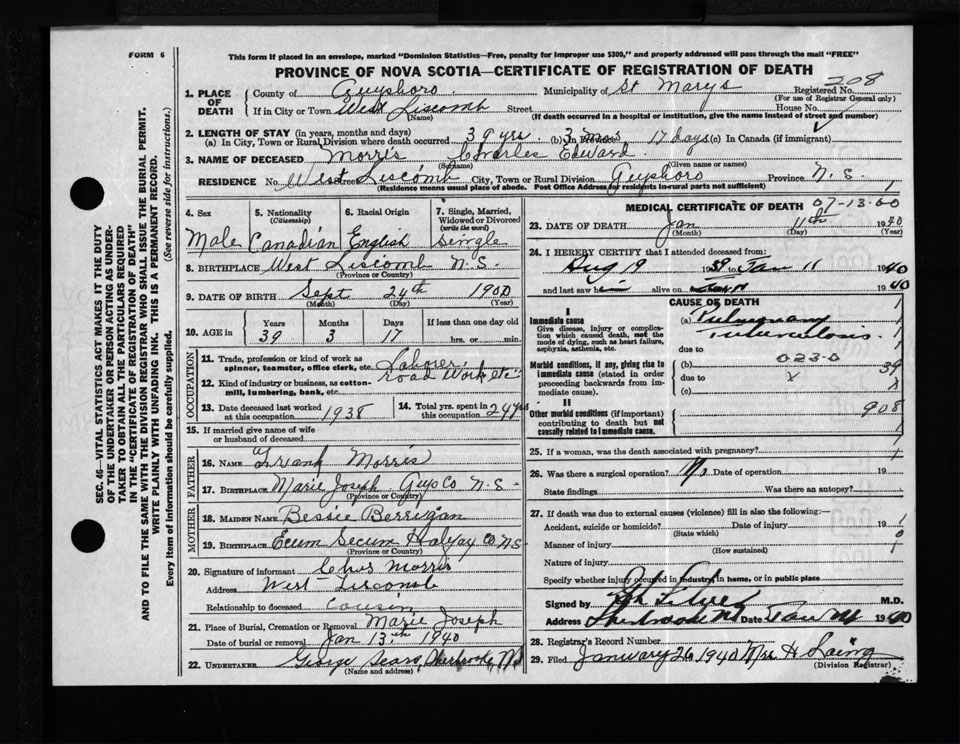 FORM 6
This form if placed in an envelope, marked "Dominion Statistics—Free, penalty for improper use $300," and properly addressed will pass through the mail "FREE"
PROVINCE OF NOVA SCOTIA—CERTIFICATE OF REGISTRATION OF DEATH
208
1. PLACE OF DEATH
County of Guysboro. Municipality of St Marys Registered No.
(For use of Registrar General only)
If in City or Town West Liscomb Street House No.
(Name) (If death occurred in a hospital or institution, give the name instead of street and number)
2. LENGTH OF STAY (in years, months and days)
(a) In City, Town or Rural Division where death occurred 39 yrs. 3 Mos 17 Days (b) In Province (c) In Canada (if immigrant)
3. NAME OF DECEASED Morris Charles Edward.
(Surname) (Given name or names)
RESIDENCE No. West Liscomb Street City, Town or Rural Division Guysboro Province N. S.
(Residence means usual place of abode. Post Office Address for residents in rural parts not sufficient)
4. Sex
Male
5. Nationality
(Citizenship)
Canadian
6. Racial Origin
English
7. Single, Married, Widowed or Divorced
(write the word)
Single
8. BIRTHPLACE West Liscomb N.S.
(Province or Country)
9. DATE OF BIRTH Sept 24th 1900
(Month) (Day) (Year)
10. AGE in
Years Months Days If less than one day old
39 3 17 hrs. or min.
OCCUPATION
11. Trade, profession or kind of work as spinner, teamster, office clerk, etc. Laborer,
road Work etc
12. Kind of industry or business, as cotton-mill, lumbering, bank, etc.
13. Date deceased last worked at this occupation 1938
14. Total yrs. spent in this occupation 24 yrs
15. If married give name of wife or husband of deceased
FATHER
16. NAME Frank Morris
17. BIRTHPLACE Marie Joseph Guys Co N.S.
(Province or Country)
MOTHER
18. MAIDEN NAME Bessie Berrigan
19. BIRTHPLACE Ecum Secum Halifax Co N.S.
(Province or Country)
20. Signature of informant Chas Morris
Address West Liscomb
Relationship to deceased cousin
21. Place of Burial, Cremation or Removal Marie Joseph
Date of burial or removal Jan 13th 1940
22. UNDERTAKER George Sears, Sherbrooke, N.S
(Name and address)
MEDICAL CERTIFICATE OF DEATH 07-13.00
23. DATE OF DEATH Jan 11th 1940
(Month) (Day) (Year)
24. I HEREBY CERTIFY that I attended deceased from:
Aug 19 1939 to Jan 11 1940
and last saw him alive on Jan 11 1940
CAUSE OF DEATH
I
Immediate cause
Give disease, injury or complication which caused death, not the mode of dying, such as heart failure, asphyxia, asthenia, etc.
(a) Pulmonary
Tuberculosis.
due to
Morbid conditions, if any, giving rise to immediate cause (stated in order proceeding backwards from immediate cause).
023-0
(b) 39
due to
(c)
II
Other morbid conditions (if important) contributing to death but not causally related to immediate cause.
908
25. If a woman, was the death associated with pregnancy?
26. Was there a surgical operation? No Date of operation 19
State findings Was there an autopsy?
27. If death was due to external causes (violence) fill in also the following:
Accident, suicide or homicide? Date of injury 19
(State which)
Manner of injury
(How sustained)
Nature of injury
Specify whether injury occurred in industry, in home, or in public place
Signed by M.D.
Address Sherbrooke NS Date Jan 1940
28. Registrar's Record Number
29. Filed January 26 1940 Mrs H Laing
(Division Registrar)
SEC. 46—VITAL STATISTICS ACT MAKES IT THE DUTY
OF THE UNDERTAKER OR PERSON ACTING AS UNDER-
TAKER TO OBTAIN ALL THE PARTICULARS REQUIRED
IN THE "CERTIFICATE OF REGISTRATION OF DEATH"
AND TO FILE THE SAME WITH THE DIVISION REGISTRAR WHO SHALL ISSUE THE BURIAL PERMIT.
WRITE PLAINLY WITH UNFADING INK. THIS IS A PERMANENT RECORD.
Every item of information should be carefully supplied. (See reverse side for instructions.)